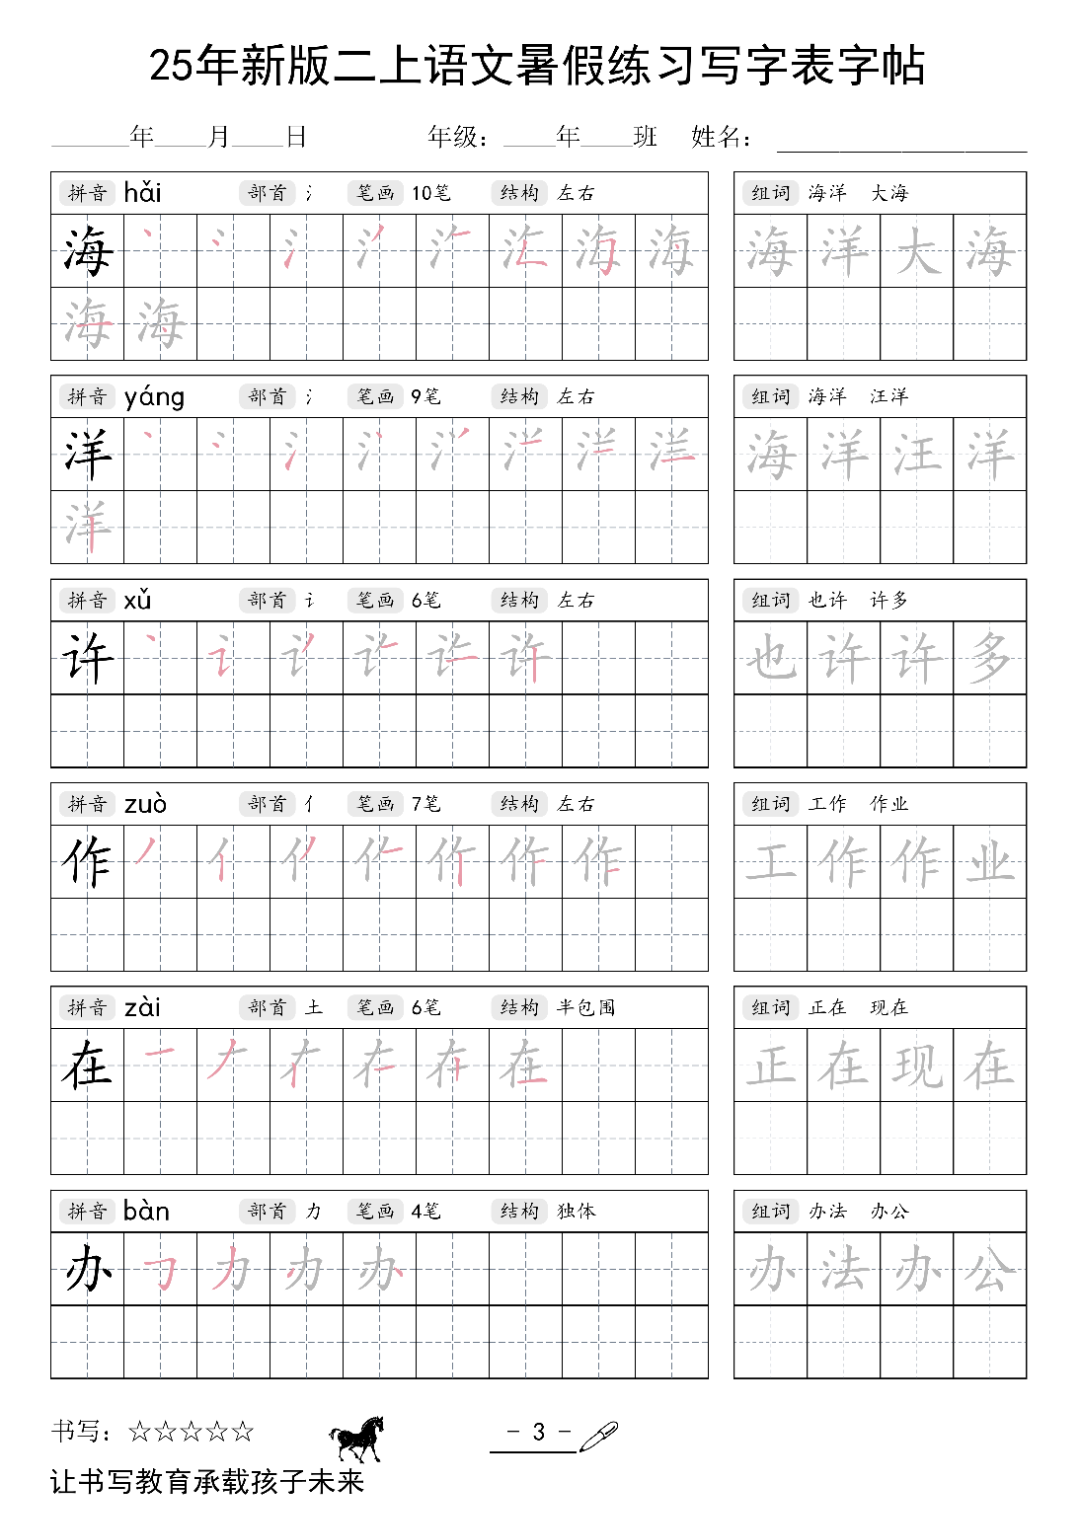 25年新版二上语文暑假练习写字表字帖
______年____月____日 年级：____年____班 姓名：
拼音 hǎi 部首 氵 笔画 10笔 结构 左右 组词 海洋 大海
海 丶 氵 氵 海 海 海 海 海 海 洋 大 海
海 海
拼音 yáng 部首 氵 笔画 9笔 结构 左右 组词 海洋 汪洋
洋 丶 氵 氵 洋 洋 洋 洋 洋 海 洋 汪 洋
洋
拼音 xǔ 部首 讠 笔画 6笔 结构 左右 组词 也许 许多
许 丶 讠 许 许 许 许 也 许 许 多
拼音 zuò 部首 亻 笔画 7笔 结构 左右 组词 工作 作业
作 丿 亻 作 作 作 作 作 工 作 作 业
拼音 zài 部首 土 笔画 6笔 结构 半包围 组词 正在 现在
在 一 𠂇 在 在 在 在 正 在 现 在
拼音 bàn 部首 力 笔画 4笔 结构 独体 组词 办法 办公
办 𠃌 力 办 办 办 法 办 公
书写：☆☆☆☆☆ - 3 -
让书写教育承载孩子未来